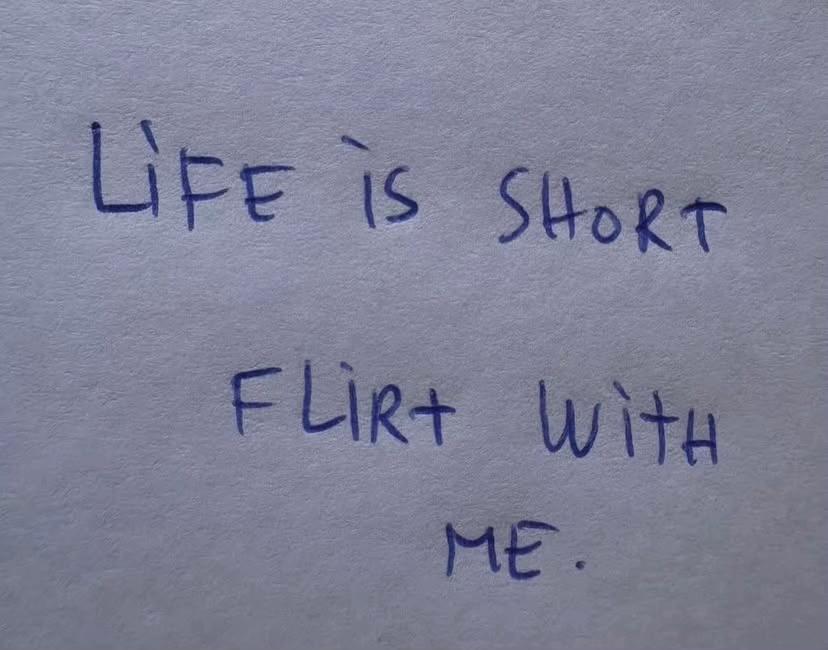 LiFE is SHORT
FLiRt WitH
ME.